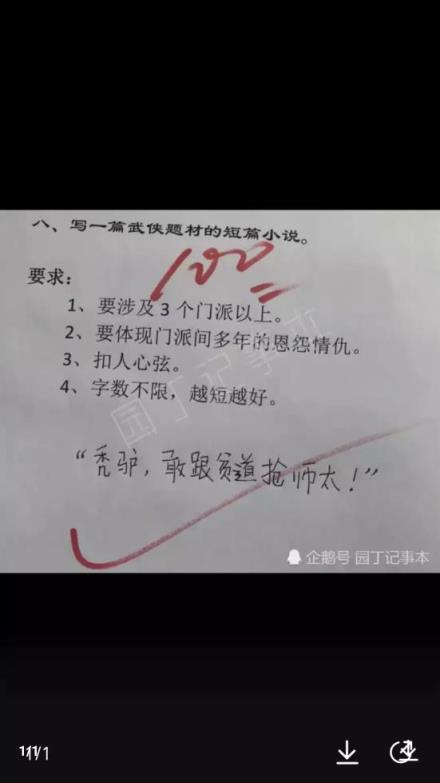 八、写一篇武侠题材的短篇小说。
100
要求：
1、要涉及3个门派以上。
2、要体现门派间多年的恩怨情仇。
3、扣人心弦。
4、字数不限，越短越好。
园丁记事本
“秃驴，敢跟贫道抢师太！”
企鹅号 园丁记事本
1/1